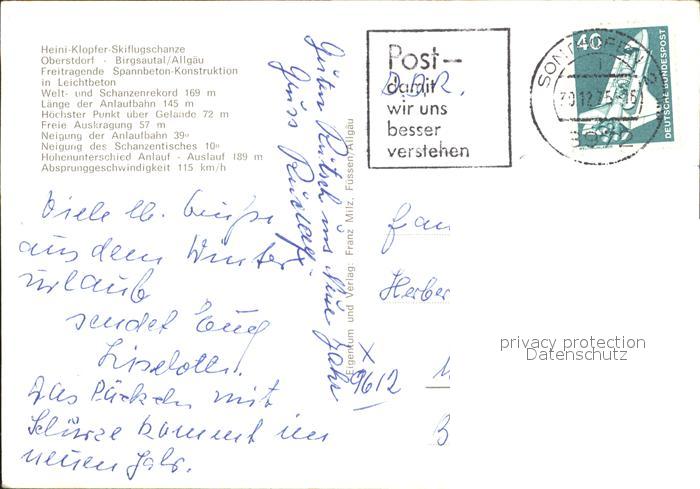 Heini-Klopfer-Skiflugschanze
Oberstdorf - Birgsautal/Allgäu
Freitragende Spannbeton-Konstruktion
in Leichtbeton
Welt- und Schanzenrekord 169 m
Länge der Anlaufbahn 145 m
Höchster Punkt über Gelände 72 m
Freie Auskragung 57 m
Neigung der Anlaufbahn 39°
Neigung des Schanzentisches 10°
Höhenunterschied Anlauf - Auslauf 189 m
Absprunggeschwindigkeit 115 km/h
Viele lb. Grüße
aus dem Winter
urlaub
sendet Eug
Liselotte.
Das Päckchen mit
Schürze kommt im
neuen Jahr.
Guten Rutsch ins Neue Jahr
Gruss
Eigentum und Verlag: Franz Milz, Füssen/Allgäu
Post-
damit
wir uns
besser
verstehen
DDR.
40
DEUTSCHE BUNDESPOST
30.12.75
8972
Frau
Herber
X
9612
B
privacy protection
Datenschutz